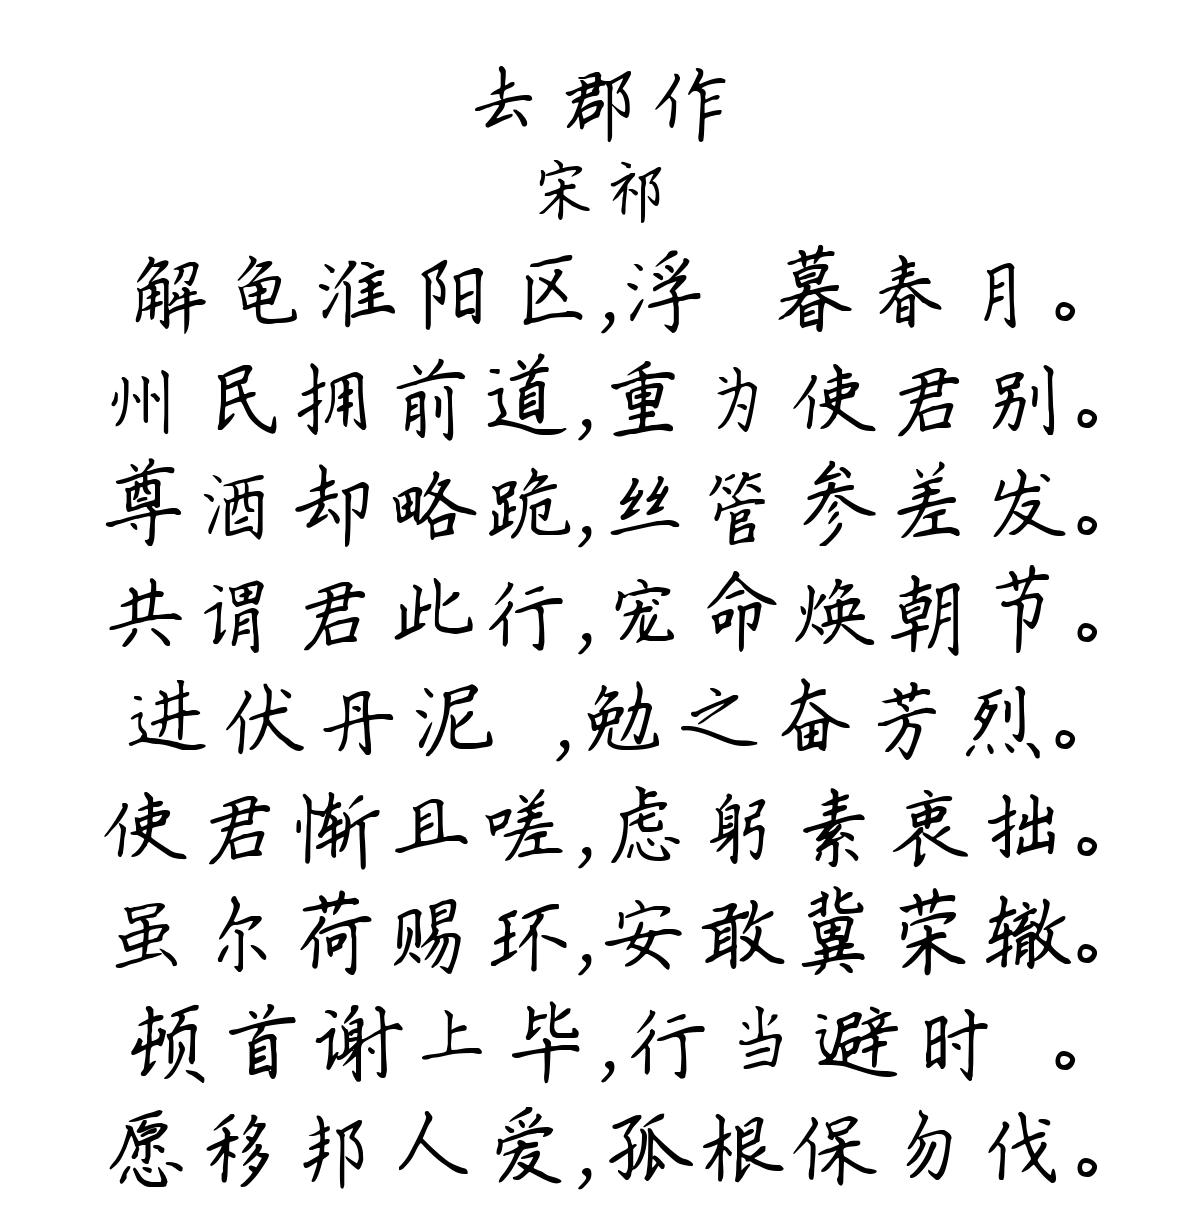 去郡作
宋祁
解龟淮阳区,浮 暮春月。
州民拥前道,重为使君别。
尊酒却略跪,丝管参差发。
共谓君此行,宠命焕朝节。
进伏丹泥 ,勉之奋芳烈。
使君惭且嗟,虑躬素衷拙。
虽尔荷赐环,安敢冀荣辙。
顿首谢上毕,行当避时 。
愿移邦人爱,孤根保勿伐。